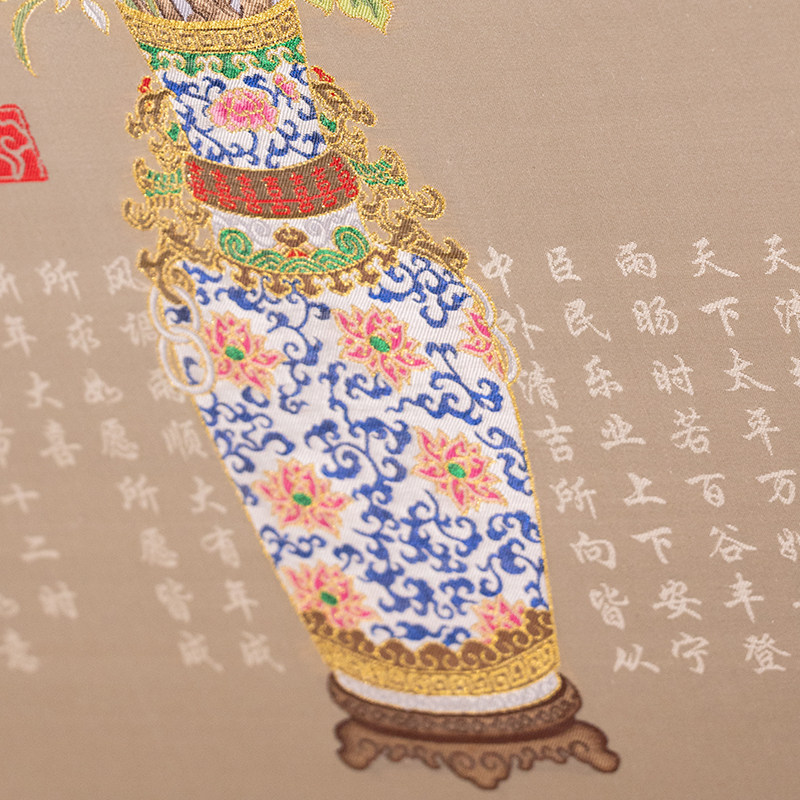 天
天下太平万
雨旸时若百谷丰登
臣民乐业上下安宁
中外清吉所向皆从
风调雨顺大有年成
所求如愿所愿皆成
年大喜
十二时
意